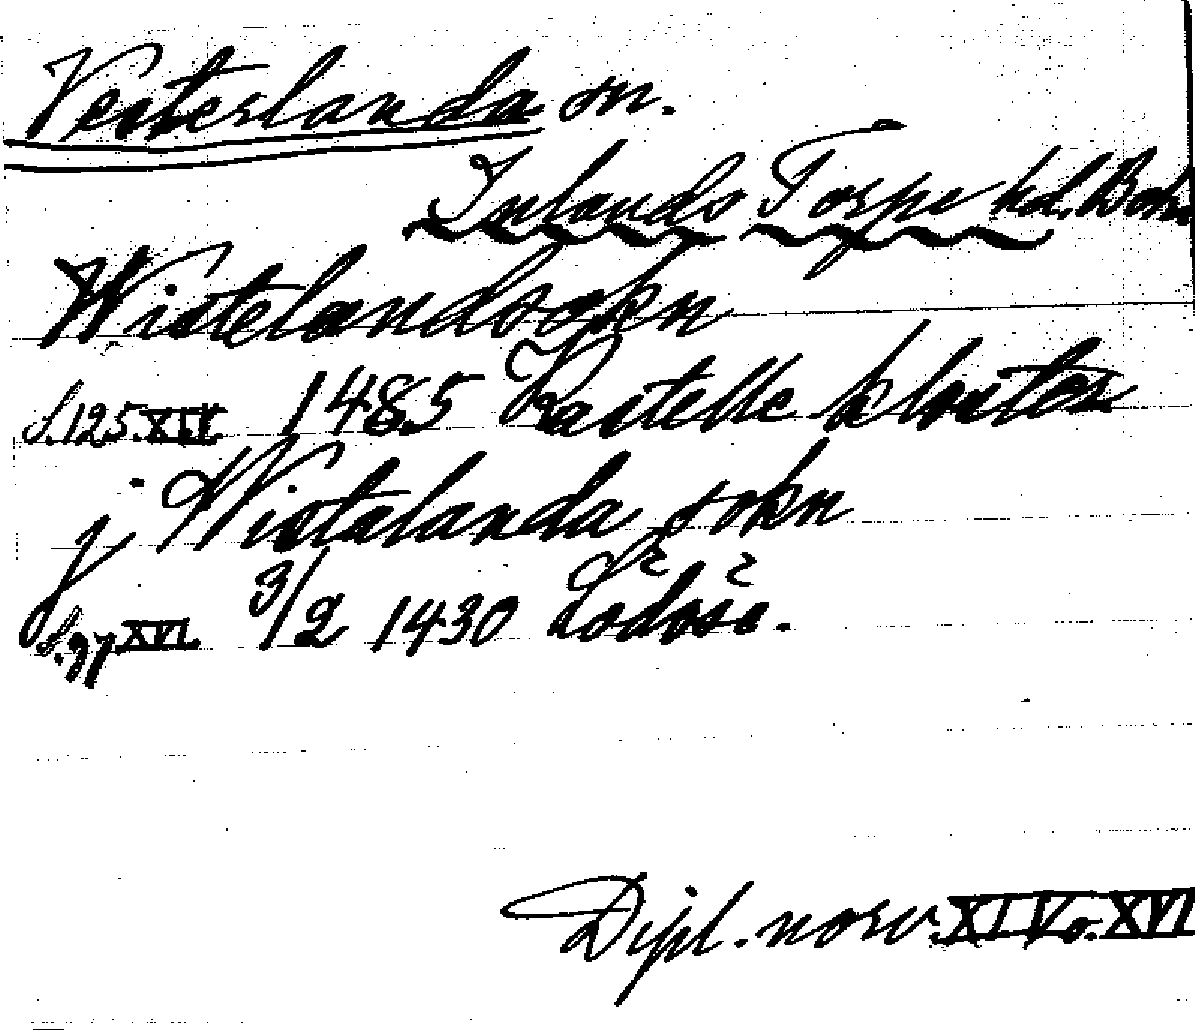 Vesterlanda sn.
Inlands Torpe hd. Boh
Wistelandsokn
S. 125. XIV 1485 Kastelle kloster
j Wistalanda sokn
S. 97 XVI. 3/2 1430 Lödöse.
Dipl. norv. XIV o. XVI